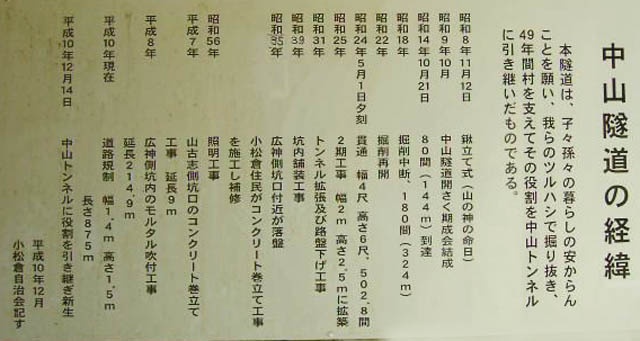 中山隧道の経緯
本隧道は、子々孫々の暮らしの安からん
ことを願い、我らのツルハシで掘り抜き、
49年間村を支えてその役割を中山トンネル
に引き継いだものである。
昭和8年11月12日 鍬立て式(山の神の命日)
昭和9年10月 中山隧道開さく期成会結成
昭和14年10月21日 80間(144m)到達
昭和18年 掘削中断、180間(324m)
昭和22年 掘削再開
昭和24年5月1日夕刻 貫通 幅4尺、高さ6尺、502.8間
昭和25年 2期工事 幅2m 高さ2.5mに拡築
昭和31年 トンネル拡張及び路盤下げ工事
昭和39年 坑内舗装工事
昭和55年 広神側坑口付近が落盤
小松倉住民がコンクリート巻立て工事
を施工し補修
昭和56年 照明工事
平成7年 山古志側坑口のコンクリート巻立て
工事 延長9m
平成8年 広神側坑内のモルタル吹付工事
延長214,9m
平成10年現在 道路規制 幅1,4m 高さ1,5m
長さ875m
平成10年12月14日 中山トンネルに役割を引き継ぎ新生
平成10年12月
小松倉自治会記す